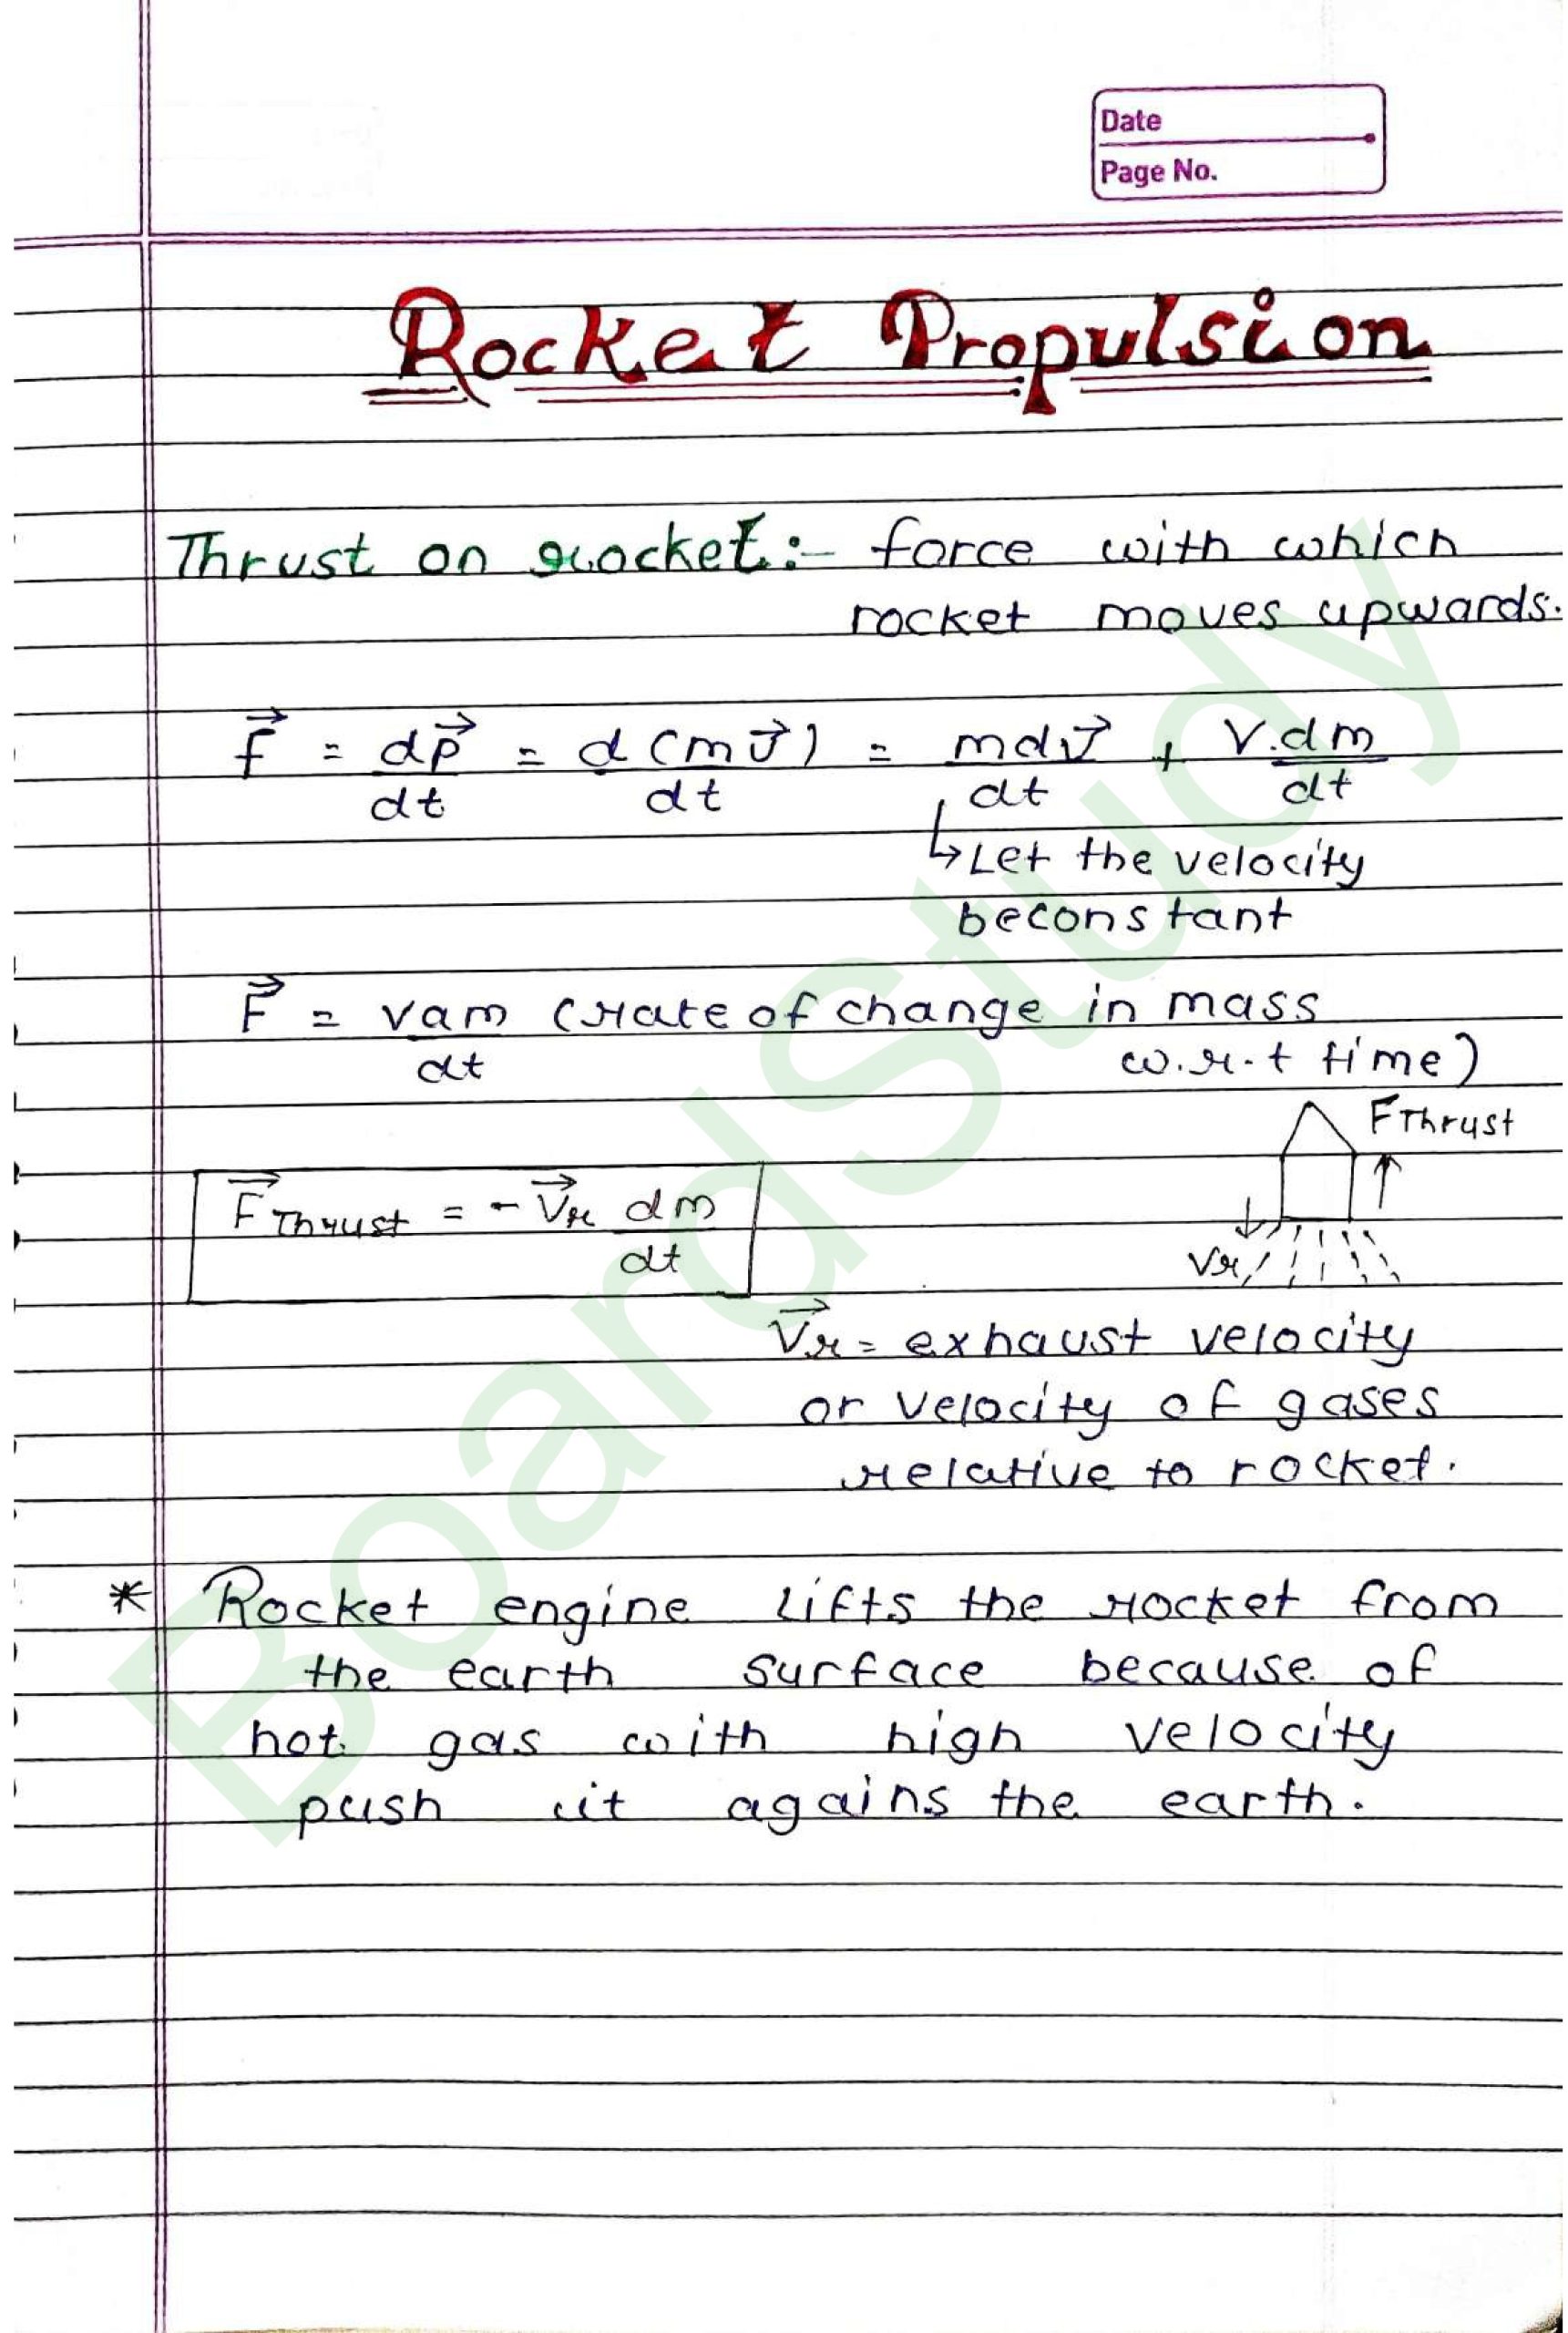 Date
Page No.
Rocket Propulsion
Thrust on rocket:- force with which
rocket moves upwards.
f⃗ = dp⃗/dt = d(mv⃗)/dt = mdv⃗/dt + V.dm/dt
↳ Let the velocity
be constant
F⃗ = vdm/dt (rate of change in mass
w.r.t time)
F Thrust
F⃗ Thrust = - V⃗r dm/dt
Vr
V⃗r = exhaust velocity
or velocity of gases
relative to rocket.
* Rocket engine lifts the rocket from
the earth surface because of
hot gas with high velocity
push it agains the earth.
BoardStudy